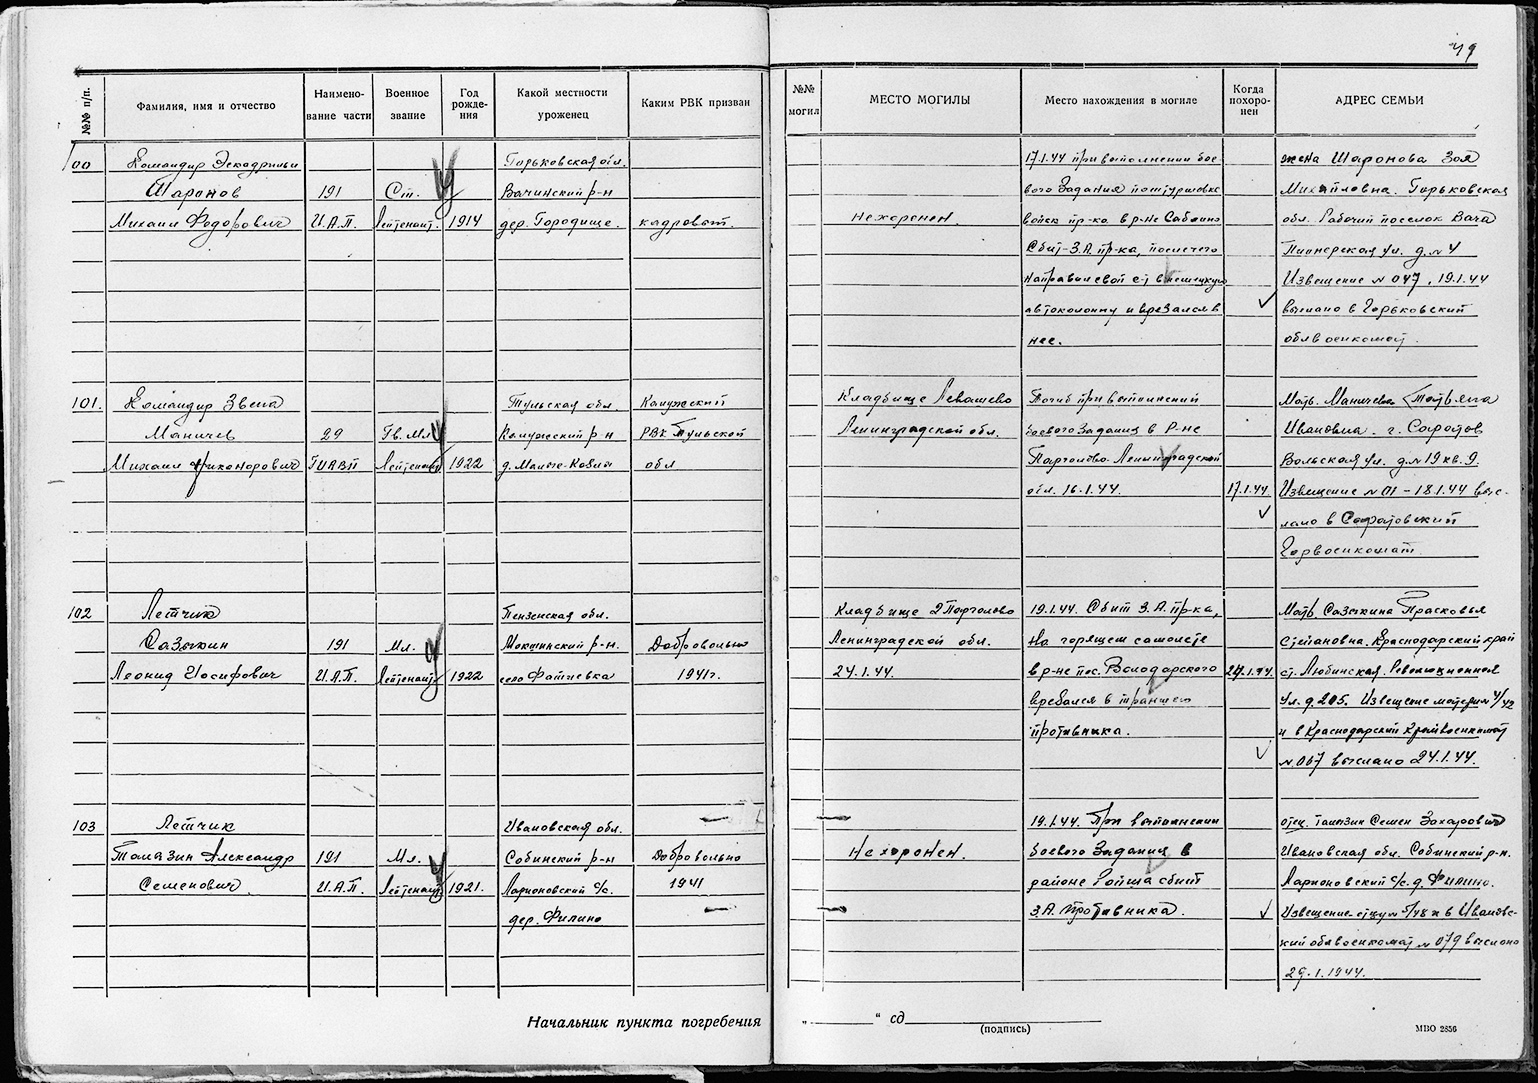 49
№№ п/п.
Фамилия, имя и отчество
Наимено-
вание части
Военное
звание
Год
рожде-
ния
Какой местности
уроженец
Каким РВК призван
№№
могил
МЕСТО МОГИЛЫ
Место нахождения в могиле
Когда
похоро-
нен
АДРЕС СЕМЬИ
100
Командир Эскадрильи
Шаронов
Михаил Федорович
191
И.А.П.
Ст.
Лейтенант.
1914
Горьковская обл.
Вачинский р-н
дер. Городище.
кадровый.
Не хоронен.
17.1.44 при выполнении бое-
вого Задания по штурмовке
войск пр-ка в р-не Саблино
Сбит З.А. пр-ка, после чего
направил свой с-т в немецкую
автоколонну и врезался в
нее.
жена Шаронова Зоя
Михайловна. Горьковская
обл. Рабочий поселок Вача
Пионерская ул. д. № 4
Извещение № 047, 19.1.44
выслано в Горьковский
облвоенкомат.
101.
Командир Звена
Маничев
Михаил Никонорович
29
ГИАВП
Гв. Мл.
Лейтенант
1922
Тульская обл.
Калужский р-н
Калужский
РВК Тульской
обл
Кладбище Левашево
Ленинградской обл.
Погиб при выполнении
боевого Задания в Р-не
Парголово Ленинградской
обл. 16.1.44.
17.1.44.
Мать. Маничева Татьяна
Ивановна. г. Саратов
Вольская ул. д. № 19 кв. 9.
Извещение № 01 - 18.1.44 выс-
лано в Саратовский
Горвоенкомат
102
Летчик
Сазыкин
Леонид Иосифович
191
И.А.П.
Мл.
Лейтенант.
1922
Пензенская обл.
Мокшинский р-н.
село Фатиевка
Добровольно
1941г.
Кладбище 2 Парголово
Ленинградской обл.
24.1.44.
19.1.44. Сбит З.А. пр-ка,
На горящем самолете
в р-не пос. Володарского
врезался в траншеи
противника.
24.1.44.
Мать Сазыкина Прасковья
Степановна. Краснодарский край
ст. Любинская. Революционная
ул. д. 205. Извещение матери № 4/42
и в Краснодарский Крайвоенкомат
№ 067 выслано 24.1.44.
103
Летчик
Томазин Александр
Семенович.
191
И.А.П.
Мл.
Лейтенант
1921.
Ивановская обл.
Собинский р-н
Ларионовский с/с.
дер. Филино
Добровольно
1941
Не хоронен.
19.1.44. При выполнении
боевого Задания в
районе Ропша сбит
З.А. противника.
отец. Томазин Семен Захарович
Ивановская обл. Собинский р-н.
Ларионовский с/с. д. Филино.
Извещение отцу № 5/48 и в Ивановс-
кий облвоенкомат № 079 выслано
29.1.1944.
Начальник пункта погребения
„ “ сд
(подпись)
МВО 2856